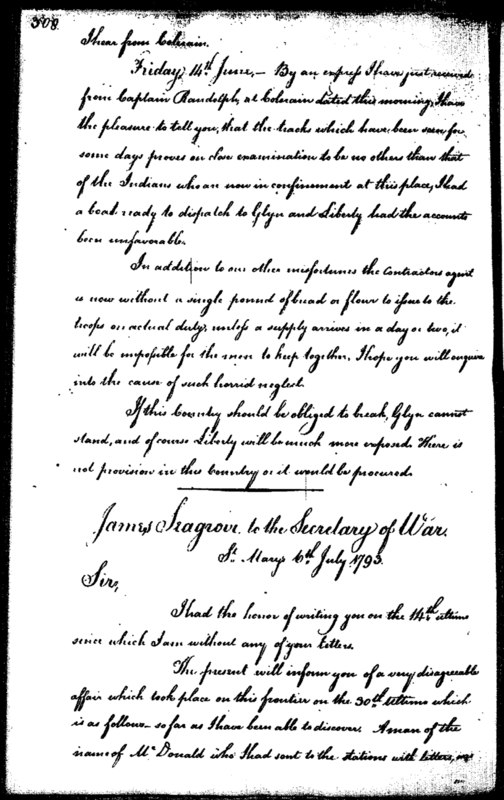 308
I hear from Colerain.
Friday, 14th June,— By an express I have just received
from Captain Randolph, at Colerain dated this morning, I have
the pleasure to tell you, that the tracks which have been seen for
some days proves on close examination to be no others than that
of the Indians who are now in confinement at this place, I had
a boat ready to dispatch to Glyn and Liberty had the accounts
been unfavorable.
In addition to our other misfortunes the Contractors agent
is now without a single pound of bread or flour to issue to the
troops on actual duty, unless a supply arrives in a day or two, it
will be impossible for the men to keep together. I hope you will enquire
into the cause of such horrid neglect.
If this Country should be obliged to break, Glyn cannot
stand, and of course Liberty will be much more exposed. There is
not provision in this Country or it would be procured.
James Seagrove to the Secretary of War.
St. Marys 6th July 1793.
Sir,
I had the honor of writing you on the 14th ultimo
since which I am without any of your letters.
The present will inform you of a very disagreeable
affair which took place on this frontier on the 30th ultimo which
is as follows— so far as I have been able to discover. A man of the
name of McDonald who I had sent to the stations with letters,